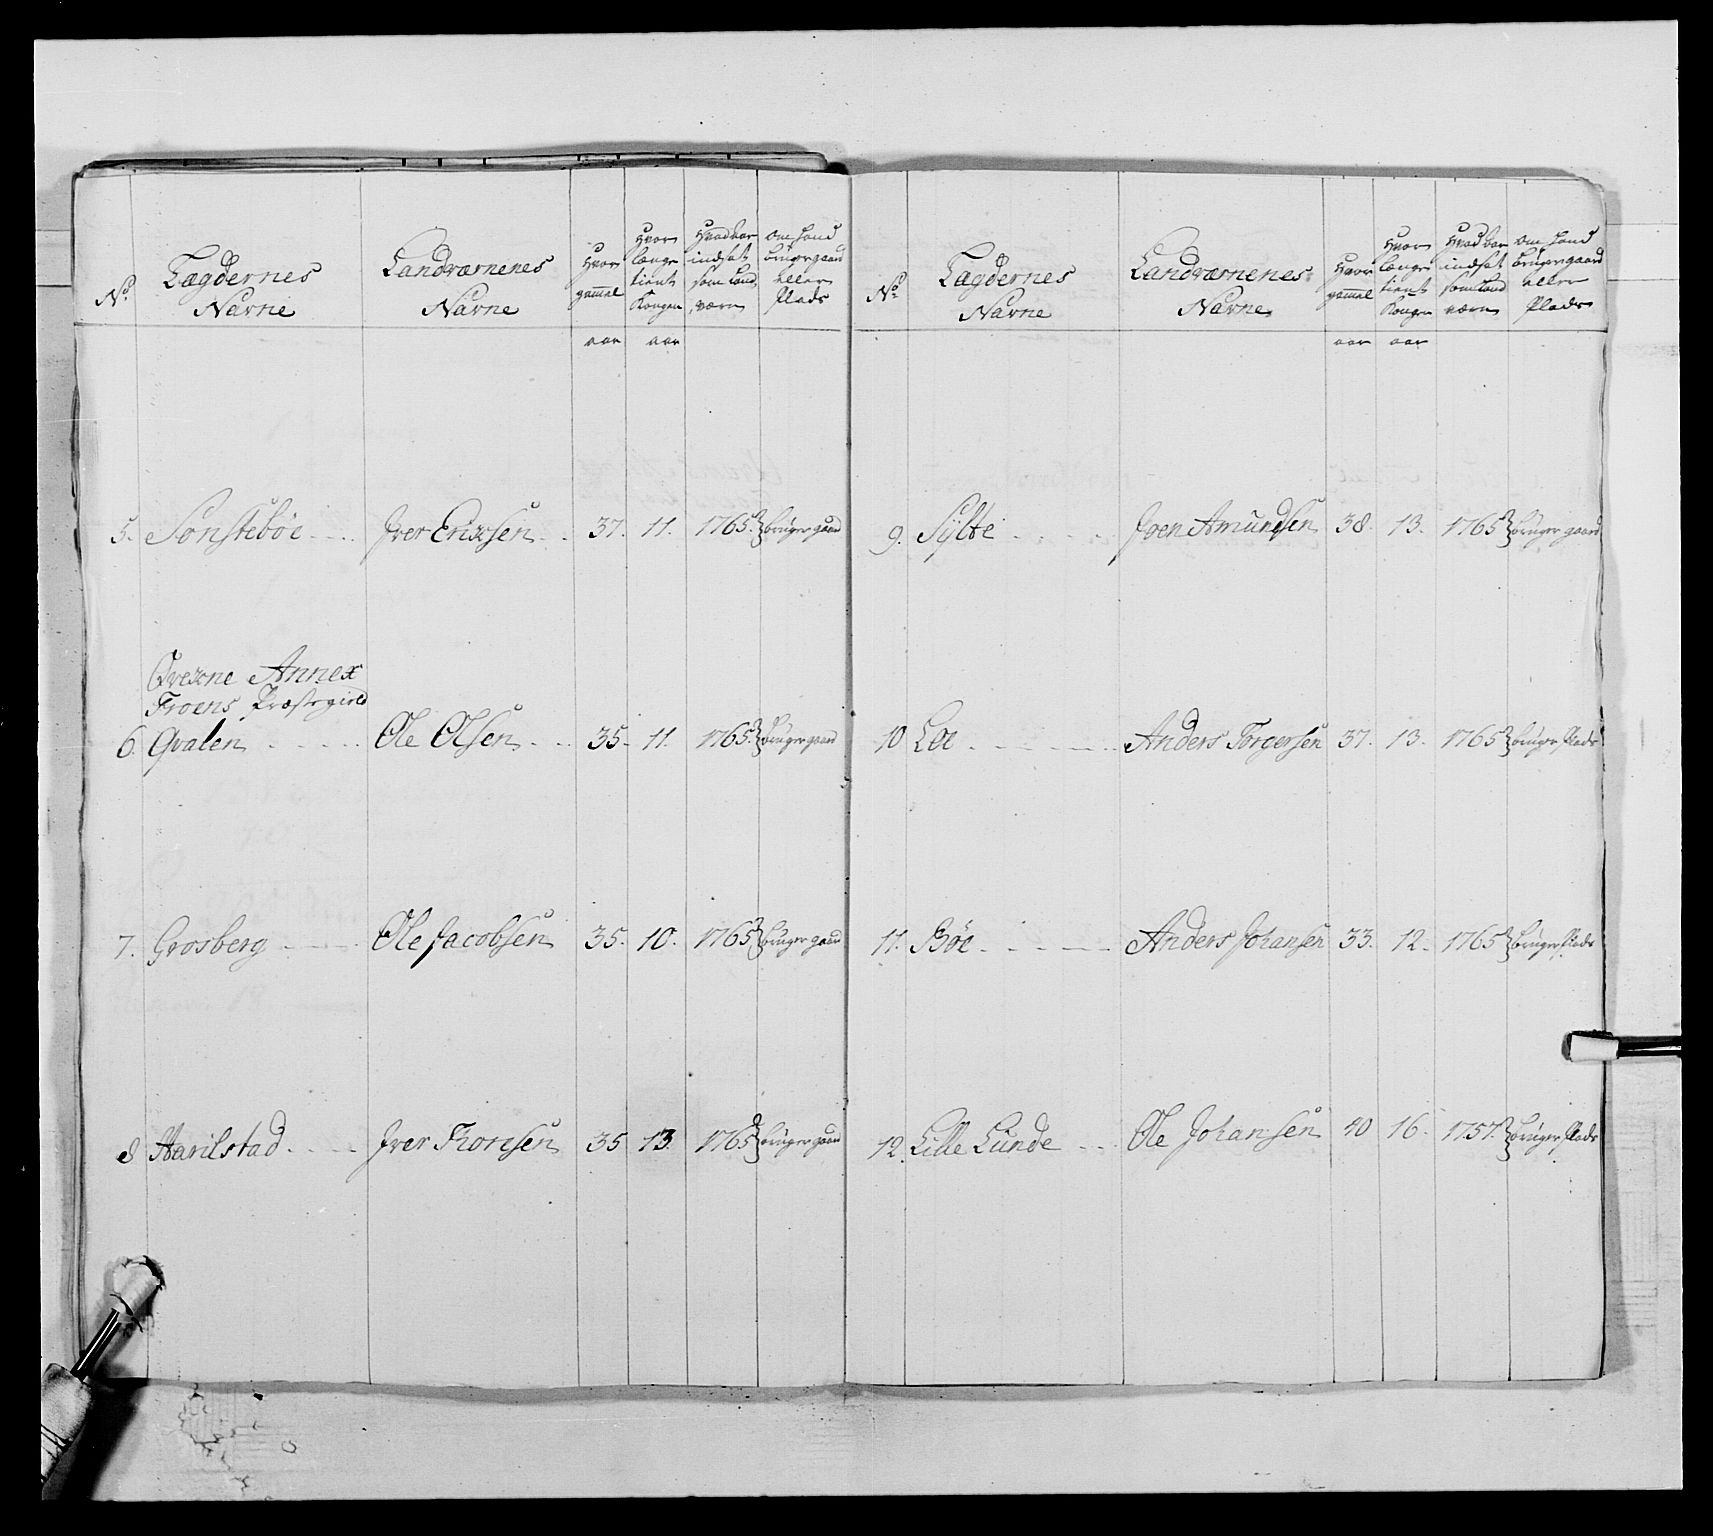 No
Lægdernes
Navne
Landværnenes
Navne
Hvor
gammel
Hvor
længe
tient
Kongen
Hvad aar
indsat
som Land,
værn
om hand
bruger gaard
eller
Plads
aar aar
5. Sønstebøe Iver Erixsen 37. 11. 1765. bruger gaard
Qvexne Annex
Froens Præstegield
6. Qvalen Ole Olsen 35. 11. 1765. bruger gaard
7. Grosberg Ole Jacobsen 35. 10. 1765 bruger gaard
8 Havilstad Iver Thoresen 35 13. 1765. bruger gaard
No
Lægdernes
Navne
Landværnenes
Navne
Hvor
gammel
Hvor
længe
tient
Kongen
Hvad aar
indsat
som Land
værn
om hand
bruger gaard
eller
Plads
aar aar
9. Sylte Joen Amundsen 38. 13. 1765 bruger gaard
10 Loe Anders Torgersen 37. 13. 1765 bruger Plads
11. Bøe Anders Johansen 33. 12. 1765 bruger Plads
12. Lille Lunde Ole Johansen 40 16. 1757. bruger Plads